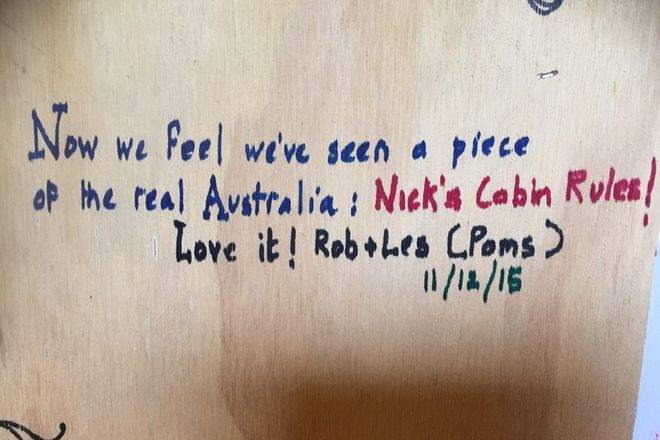 Now we feel we've seen a piece
of the real Australia: Nick's Cabin Rules!
Love it! Rob+Les (Poms)
11/12/15